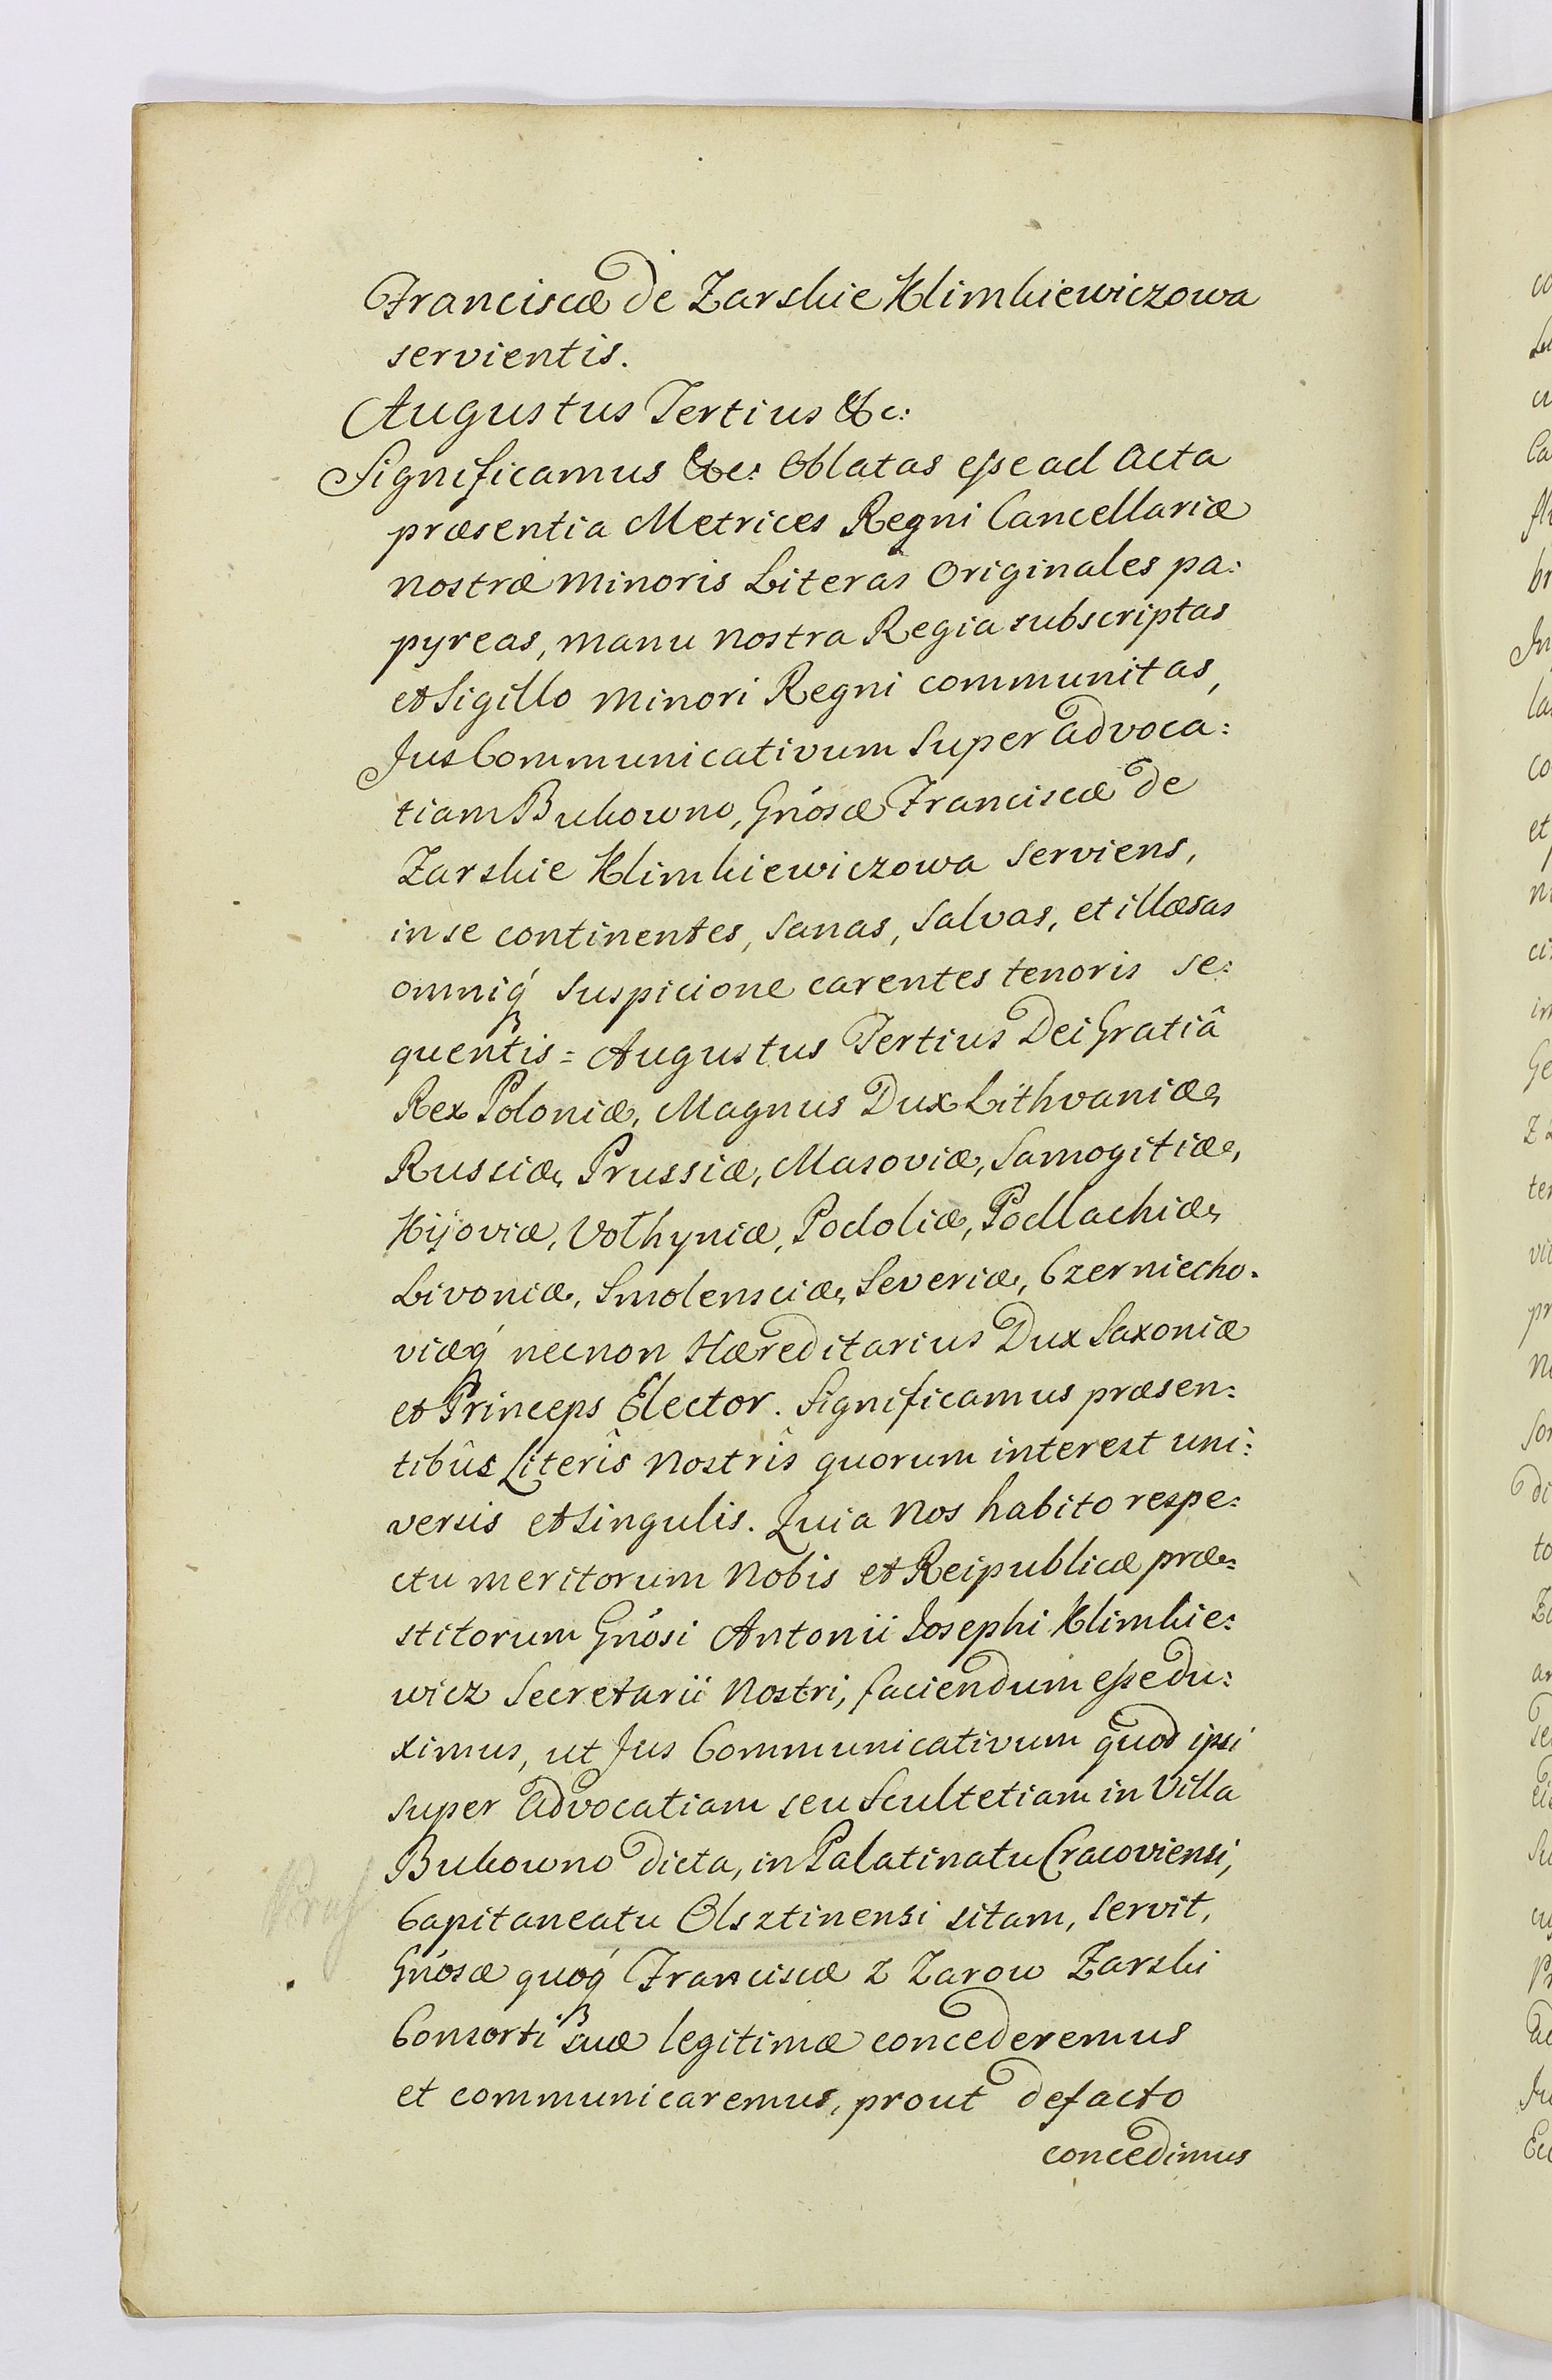 Franciscæ de Zarskie Klimkiewiczowa
servientis.
Augustus Tertius &c:
Significamus &c: Oblatas esse ad Acta
præsentia Metrices Regni Cancellariæ
nostræ minoris Literas Originales pa:
pyreas, manu nostra Regia subscriptas
et Sigillo minori Regni communitas,
Jus Communicativum super advoca:
tiam Bukowno, Gnosæ Franciscæ de
Zarskie Klimkiewiczowa serviens,
in se continentes, sanas, salvas, et illæsas
omniq́ suspicione carentes tenoris se:
quentis = Augustus Tertius Dei Gratiâ
Rex Poloniæ, Magnus Dux Lithvaniæ,
Russiæ, Prussiæ, Masoviæ, Samogitiæ,
Kijoviæ, Volhyniæ, Podoliæ, Podlachiæ,
Livoniæ, Smolensciæ, Severiæ, Czerniecho.
viæq́ necnon Hæreditarius Dux Saxoniæ
et Princeps Elector. Significamus præsen:
tibûs Literîs nostrîs quorum interest uni:
versis et singulis. Quia Nos habito respe:
ctu meritorum Nobis et Reipublicæ præ:
stitorum Gnosi Antonii Josephi Klimkie:
wicz Secretarii Nostri, faciendum esse du:
ximus, ut Jus Communicativum quod ipsi
super Advocatiam seu Scultetiam in Villa
Bukowno dicta, in Palatinatu Cracoviensi,
Capitaneatu Olsztinensi sitam, servit,
Gnosæ quoq́ Franciscæ z Zarow Zarski
Consorti suæ legitimæ concederemus
et communicaremus, prout defacto
concedimus